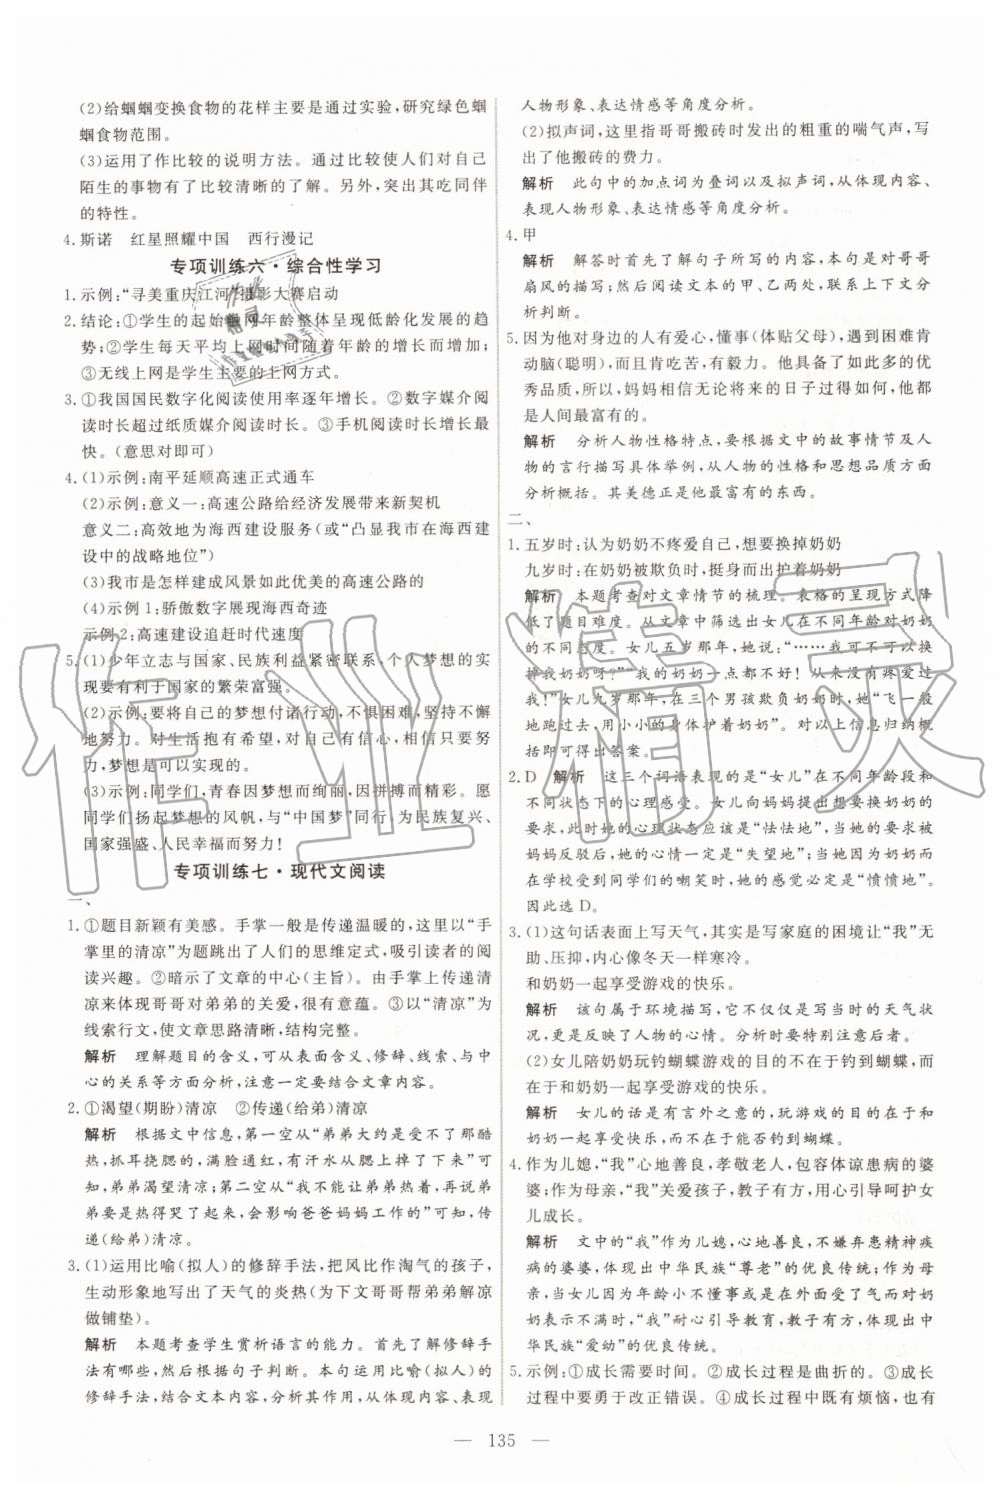 (2)给蝈蝈变换食物的花样主要是通过实验,研究绿色蝈
蝈食物范围。
(3)运用了作比较的说明方法。通过比较使人们对自己
陌生的事物有了比较清晰的了解。另外,突出其吃同伴
的特性。
4.斯诺　红星照耀中国　西行漫记
专项训练六·综合性学习
1.示例:“寻美重庆江河”摄影大赛启动
2.结论:①学生的起始触网年龄整体呈现低龄化发展的趋
势;②学生每天平均上网时间随着年龄的增长而增加;
③无线上网是学生主要的上网方式。
3.①我国国民数字化阅读使用率逐年增长。②数字媒介阅
读时长超过纸质媒介阅读时长。③手机阅读时长增长最
快。(意思对即可)
4.(1)示例:南平延顺高速正式通车
(2)示例:意义一:高速公路给经济发展带来新契机
意义二:高效地为海西建设服务(或“凸显我市在海西建
设中的战略地位”)
(3)我市是怎样建成风景如此优美的高速公路的
(4)示例1:骄傲数字展现海西奇迹
示例2:高速建设追赶时代速度
5.(1)少年立志与国家、民族利益紧密联系,个人梦想的实
现要有利于国家的繁荣富强。
(2)示例:要将自己的梦想付诸行动,不惧困难,坚持不懈
地努力。对生活抱有希望,对自己有信心,相信只要努
力,梦想是可以实现的。
(3)示例:同学们,青春因梦想而绚丽,因拼搏而精彩。愿
同学们扬起梦想的风帆,与“中国梦”同行,为民族复兴、
国家强盛、人民幸福而努力!
专项训练七·现代文阅读
一、
1.①题目新颖有美感。手掌一般是传递温暖的,这里以“手
掌里的清凉”为题跳出了人们的思维定式,吸引读者的阅
读兴趣。②暗示了文章的中心(主旨)。由手掌上传递清
凉来体现哥哥对弟弟的关爱,很有意蕴。③以“清凉”为
线索行文,使文章思路清晰,结构完整。
解析　理解题目的含义,可从表意、修辞、线索、与中
心的关系等方面分析,注意一定要结合文章内容。
2.①渴望(期盼)清凉　②传递(给弟)清凉
解析　根据文中信息,第一空从“弟弟大约是受不了那酷
热,抓耳挠腮的,满脸通红,有汗水从腮上掉了下来”可
知,弟弟渴望清凉;第二空从“我不能让弟弟热着,再说弟
弟要是热得哭了起来,会影响爸爸妈妈工作的”可知,传
递(给弟)清凉。
3.(1)运用比喻(拟人)的修辞手法,把风比作淘气的孩子,
生动形象地写出了天气的炎热(为下文哥哥帮弟弟解凉
做铺垫)。
解析　本题考查学生赏析语言的能力。首先了解修辞手
法有哪些,然后根据句子判断。本句运用比喻(拟人)的
修辞手法,结合文本内容,分析其作用,从体现内容、表现
人物形象、表达情感等角度分析。
(2)拟声词,这里指哥哥搬砖时发出的粗重的喘气声,写
出了他搬砖的费力。
解析　此句中的加点词为叠词以及拟声词,从体现内容、
表现人物形象、表达情感等角度分析。
4.甲
解析　解答时首先了解句子所写的内容,本句是对哥哥
扇风的描写;然后阅读文本的甲、乙两处,联系上下文分
析判断。
5.因为他对身边的人有爱心,懂事(体贴父母),遇到困难肯
动脑(聪明),而且肯吃苦,有毅力。他具备了如此多的优
秀品质,所以,妈妈相信无论将来的日子过得如何,他们
都是人间最富有的。
解析　分析人物性格特点,要根据文中的故事情节及人
物的言行描写具体举例,从人物的性格和思想品质方面
分析概括。其美德正是他最富有的东西。
二、
1.五岁时:认为奶奶不疼爱自己,想要换掉奶奶
九岁时:在奶奶被欺负时,挺身而出护着奶奶
解析　本题考查对文章情节的梳理。表格的呈现方式降
低了题目难度。从文章中筛选出女儿在不同年龄对奶奶
的不同态度。女儿五岁那年,她说:“……我可不可以换
掉我奶奶呀?”“我的奶奶一点都不好!她从来没有疼爱过
我!”女儿九岁那年,在三个男孩欺负奶奶时,她“飞一般
地跑过去,用小小的身体护着奶奶”。对以上信息归纳概
括即可得出答案。
2.D　解析　这三个词语表现的是“女儿”在不同年龄段和
不同状态下的心理感受。女儿向妈妈提出想要换奶奶的
要求,此时她的心理状态应该是“怯怯地”,当她的要求被
妈妈反驳后,她的心情一定是“失望地”;当她和奶奶一起
在学校受到同学们的嘲笑时,她的感觉必定是“愤愤地”。
因此选D。
3.(1)这句话表面上写天气,其实是写家庭的困境让“我”无
助、压抑,内心像冬天一样寒冷。
和奶奶一起享受游戏的快乐。
解析　该句属于环境描写,它不仅仅是写当时的天气状
况,更是反映了人物的心情。分析时要特别注意后者。
(2)女儿陪奶奶玩钓蝴蝶游戏的目的不在于钓到蝴蝶,而
在于和奶奶一起享受游戏的快乐。
解析　女儿的话是有言外之意的,玩游戏的目的在于和
奶奶一起享受快乐,而不在于钓到蝴蝶。
4.作为儿媳,“我”心地善良,孝敬老人,包容体谅患病的婆
婆;作为母亲,“我”关爱孩子,教子有方,用心引导呵护女
儿成长。
解析　文中的“我”作为儿媳,心地善良,不嫌弃患精神疾
病的婆婆,体现出中华民族“尊老”的优良传统;作为母
亲,当女儿年龄小不懂事或者在成长过程中对奶奶的疾病
表示不满时,“我”耐心引导教育,教育有方,体现出了中
华民族“爱幼”的优良传统。
5.示例:①成长需要时间。②成长过程是曲折的。③成长
过程中要勇于改正错误。④成长过程中既有烦恼,也有
— 135 —
作业精灵